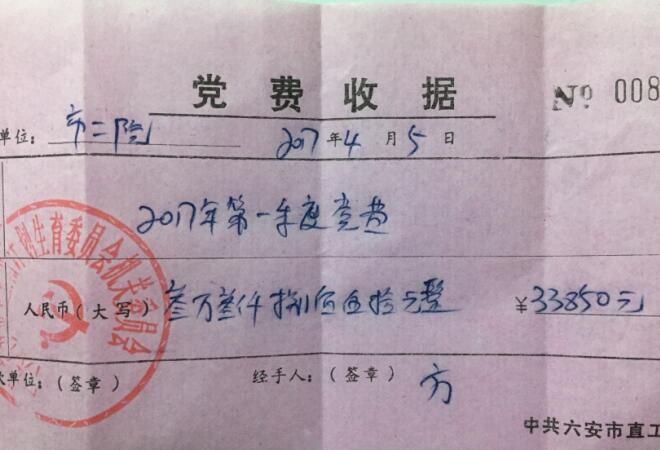 党费收据
№ 008
单位：市二院 2017年4月5日
2017年第一季度党费
人民币（大写）叁万叁仟捌佰伍拾元整 ¥33850元
单位：（签章） 经手人：（签章） 方
中共六安市直工
生育委员会机关委员会